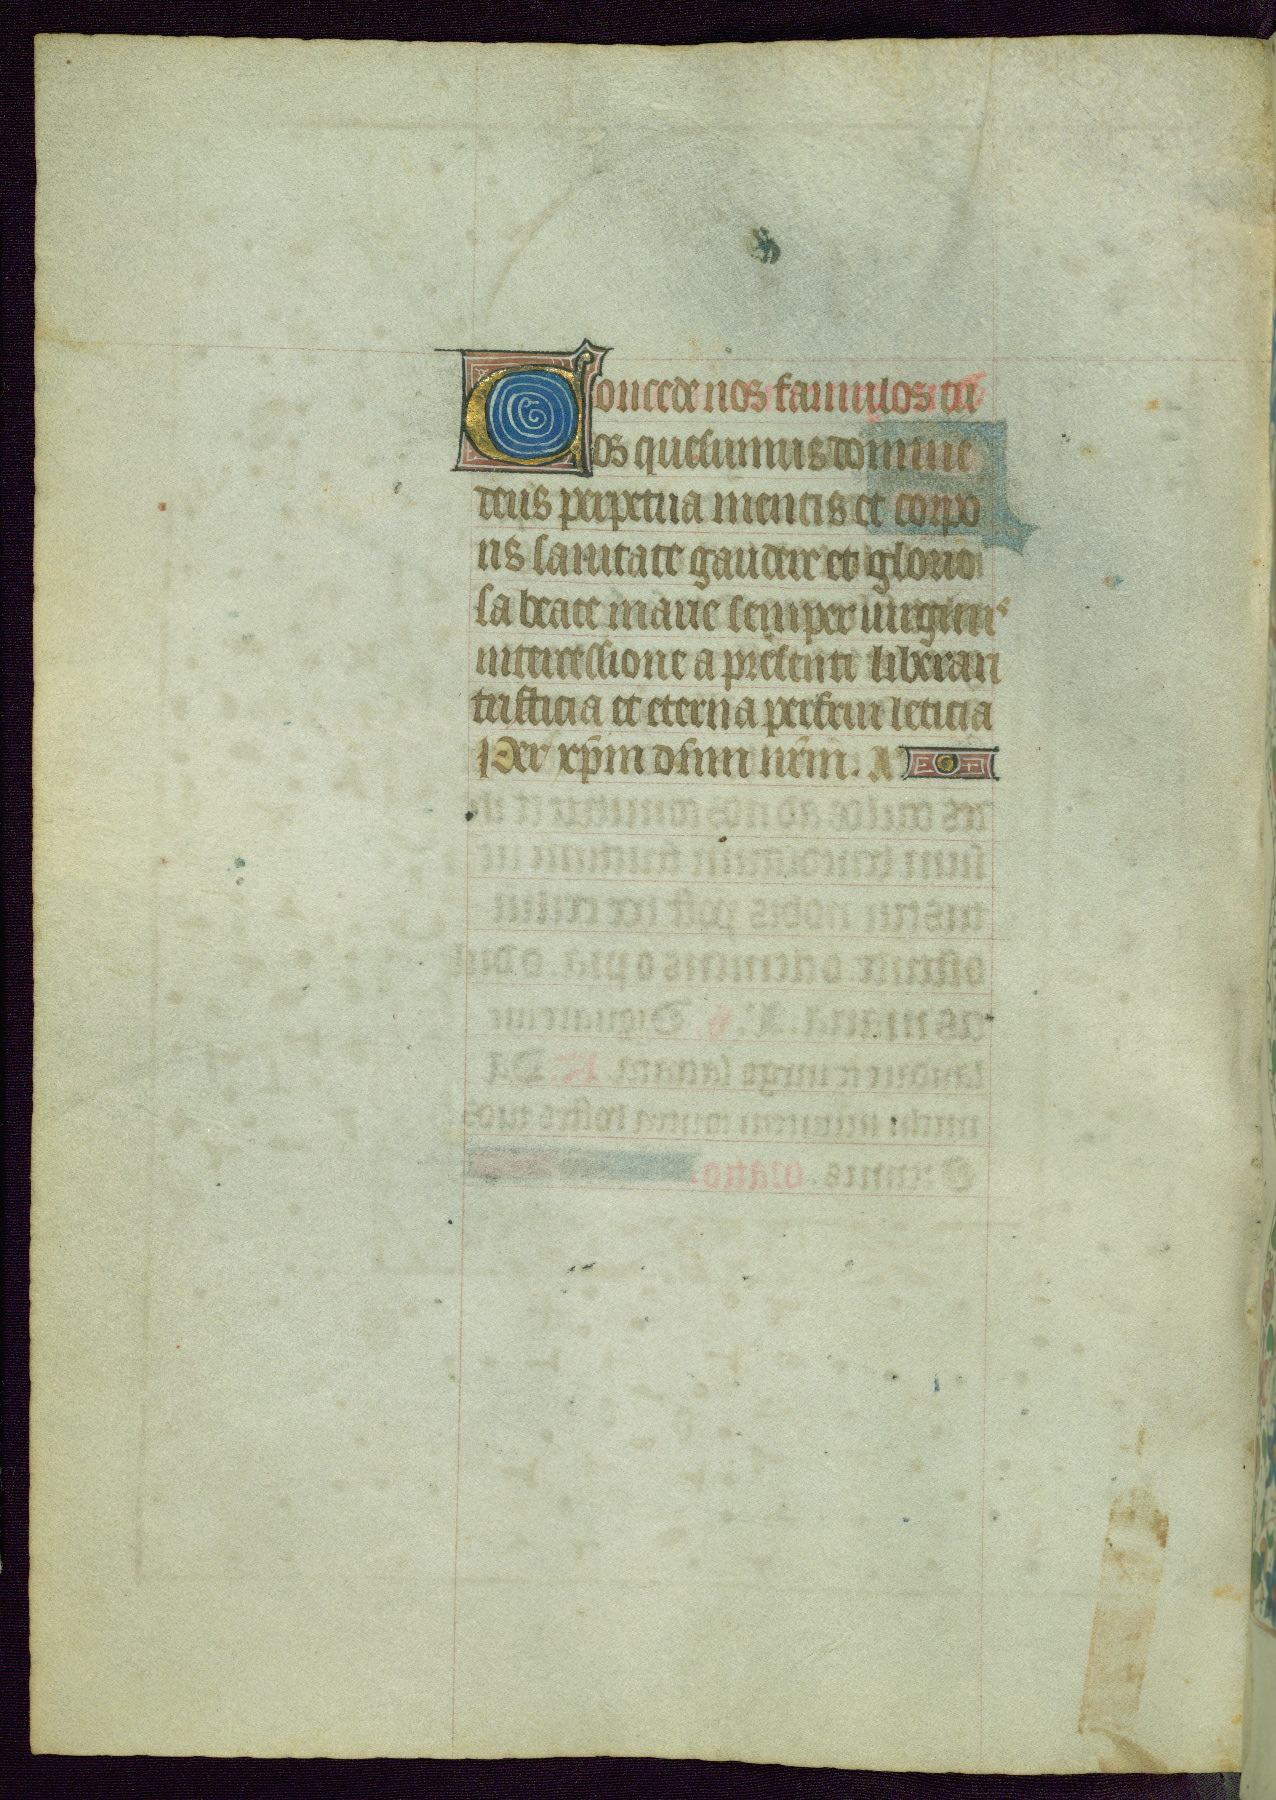 Concede nos famulos tu
os quesumus domine
deus perpetua mentis et corpo
ris sanitate gaudere et glorio
sa beate marie semper uirginis
intercessione a presenti liberari
tristicia et eterna perfrui leticia
Per xp̄m dñm nrm̄. A